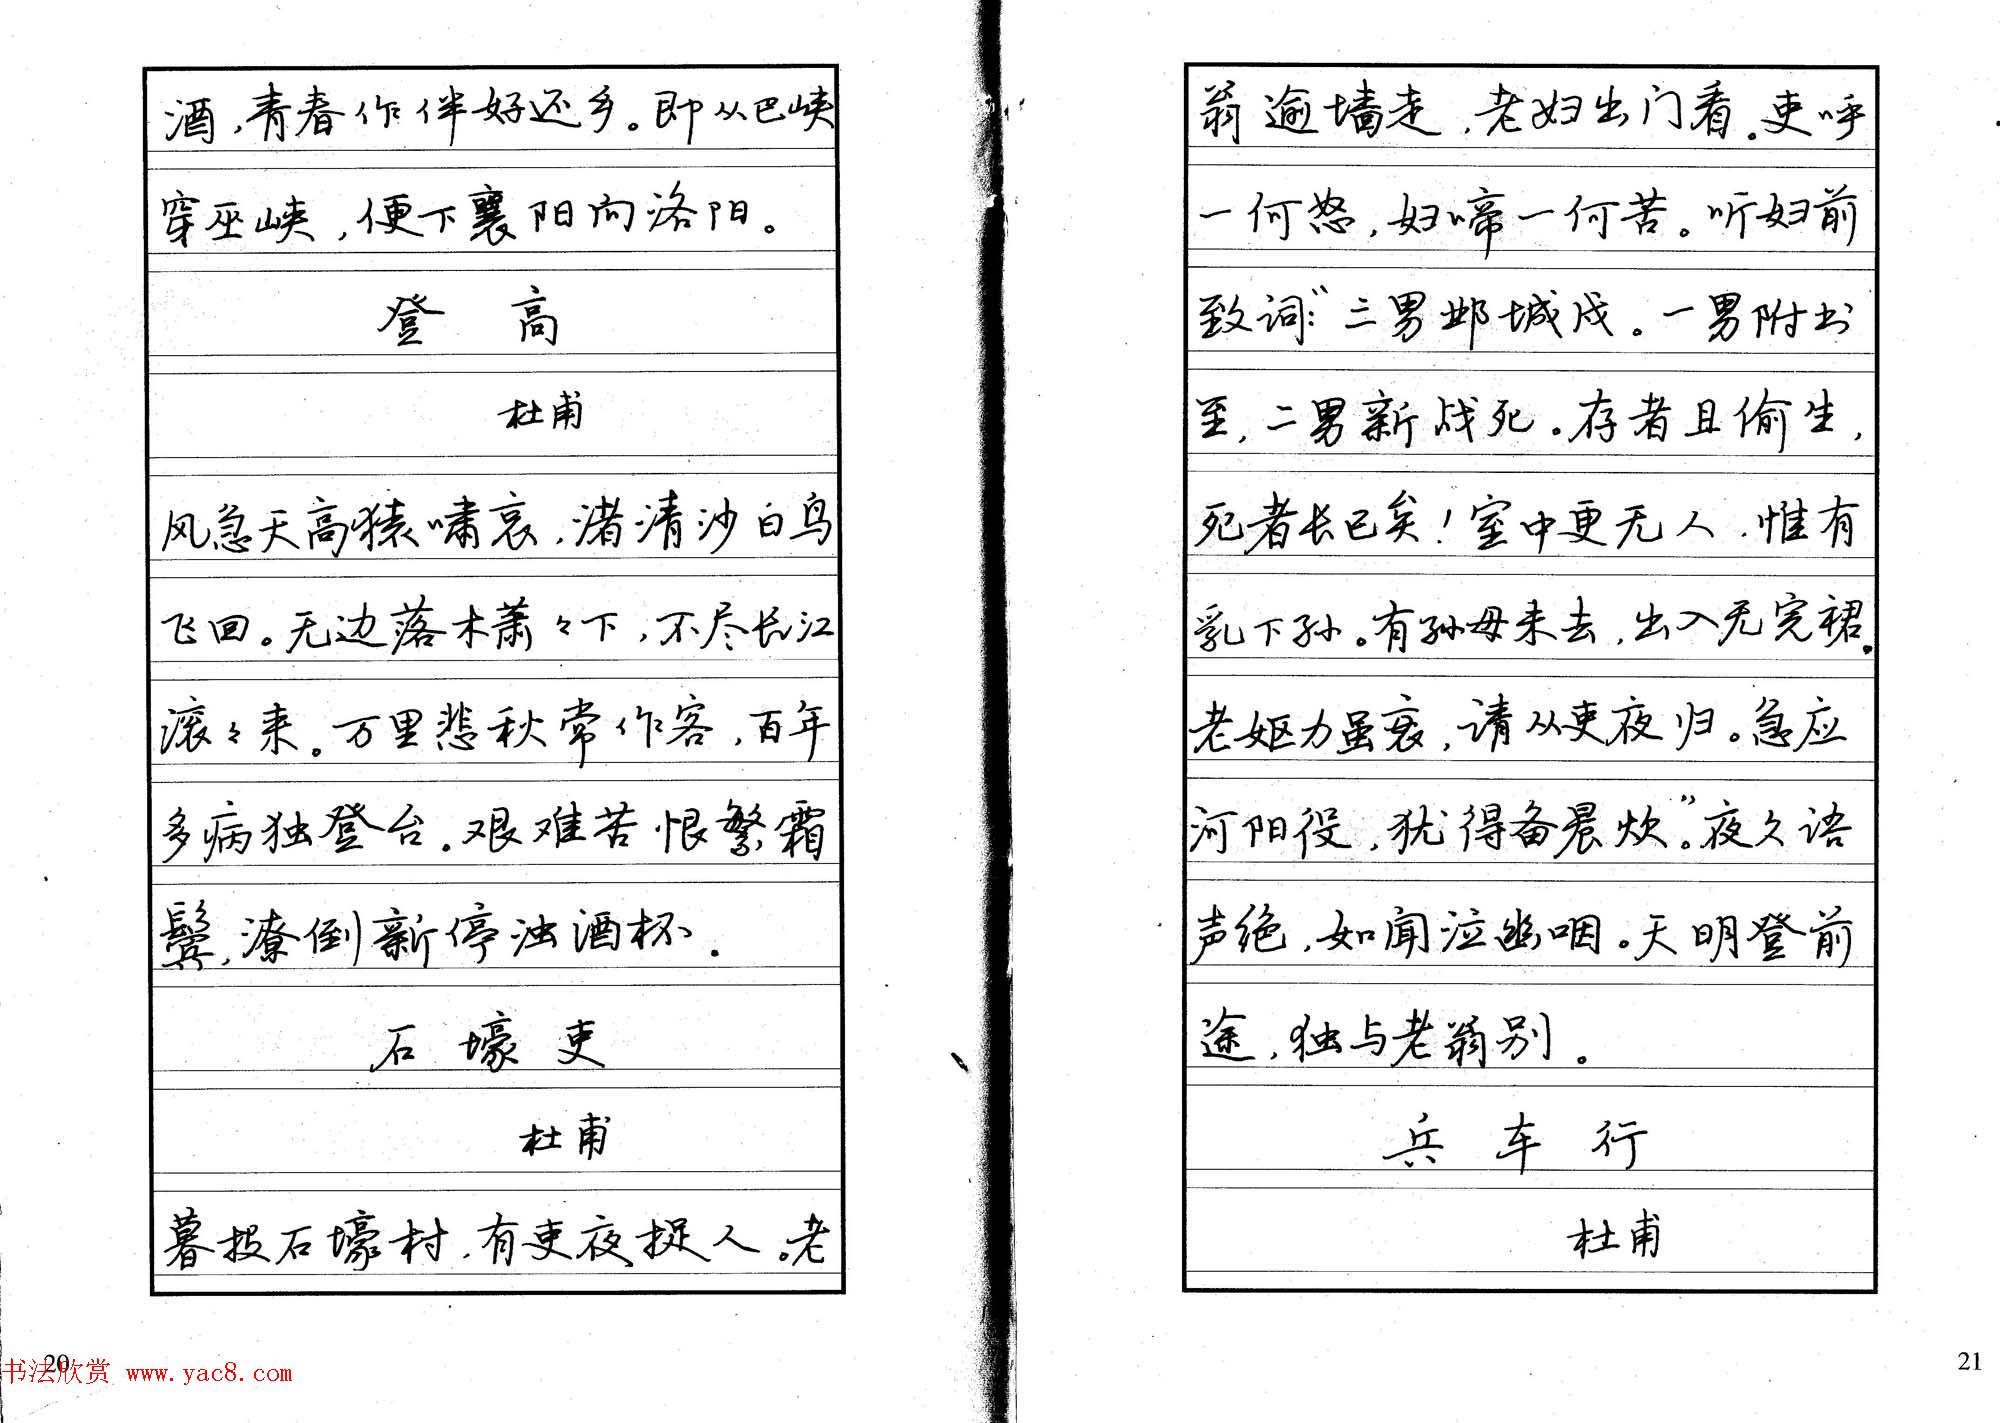 酒，青春作伴好还乡。即从巴峡
穿巫峡，便下襄阳向洛阳。
登高
杜甫
风急天高猿啸哀，渚清沙白鸟
飞回。无边落木萧々下，不尽长江
滚々来。万里悲秋常作客，百年
多病独登台。艰难苦恨繁霜
鬓，潦倒新停浊酒杯。
石壕吏
杜甫
暮投石壕村，有吏夜捉人。老
20
书法欣赏 www.yac8.com
翁逾墙走，老妇出门看。吏呼
一何怒，妇啼一何苦。听妇前
致词：“三男邺城戍。一男附书
至，二男新战死。存者且偷生，
死者长已矣！室中更无人，惟有
乳下孙。有孙母未去，出入无完裙。
老妪力虽衰，请从吏夜归。急应
河阳役，犹得备晨炊”。夜久语
声绝，如闻泣幽咽。天明登前
途，独与老翁别。
兵车行
杜甫
21